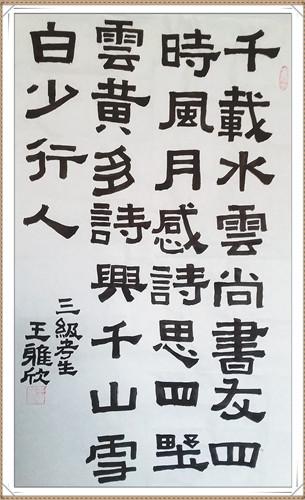 千載水雲尚書友四
時風月感詩思四野
雲黃多詩興千山雪
白少行人
三級考生
王雅欣